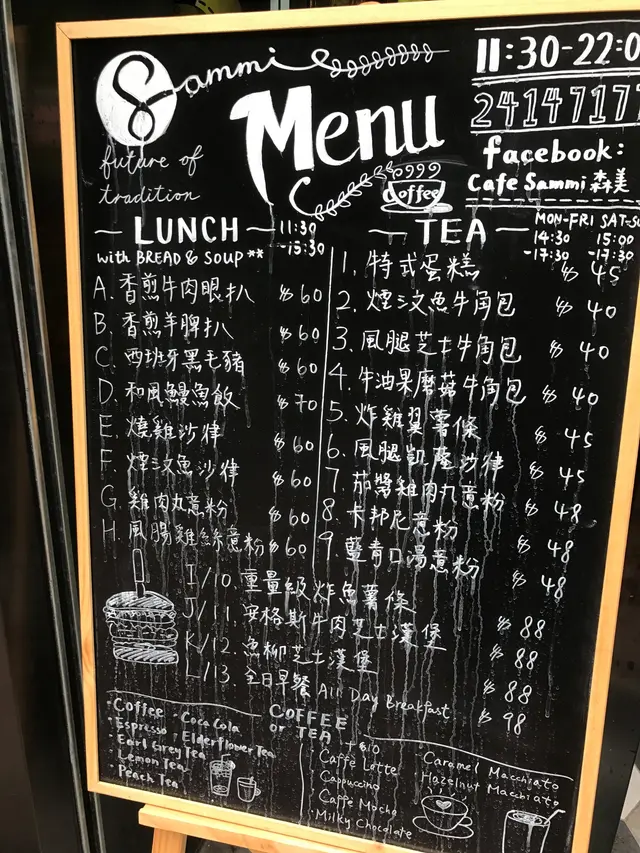 Sammi
future of
tradition
Menu
coffee
11:30-22:0
24147177
facebook:
Cafe Sammi 森美
LUNCH 11:30
-15:30
with BREAD & SOUP **
A. 香煎牛肉眼扒 $60
B. 香煎羊脾扒 $60
C. 西班牙黑毛豬 $60
D. 和風鰻魚飯 $70
E. 燒雞沙律 $60
F. 煙三文魚沙律 $60
G. 雞肉丸意粉 $60
H. 風腸雞絲意粉 $60
TEA
MON-FRI SAT-SU
14:30 15:00
-17:30 -17:30
1. 特式蛋糕 $45
2. 煙三文魚牛角包 $40
3. 風腿芝士牛角包 $40
4. 牛油果磨菇牛角包 $40
5. 炸雞翼薯條 $45
6. 風腿凱撒沙律 $45
7. 茄醬雞肉丸意粉 $48
8. 卡邦尼意粉 $48
9. 藍青口湯意粉 $48
I/10. 重量級炸魚薯條 $88
J/11. 安格斯牛肉芝士漢堡 $88
K/12. 魚柳芝士漢堡 $88
L/13. 全日早餐 All Day Breakfast $98
COFFEE
or TEA
· Coffee · Coca Cola
· Espresso · Elderflower Tea
· Earl Grey Tea
· Lemon Tea
· Peach Tea
+$10
Caffe Latte
Cappuccino
Caffe Mocha
· Milky Chocolate
Caramel Macchiato
Hazelnut Macchiato